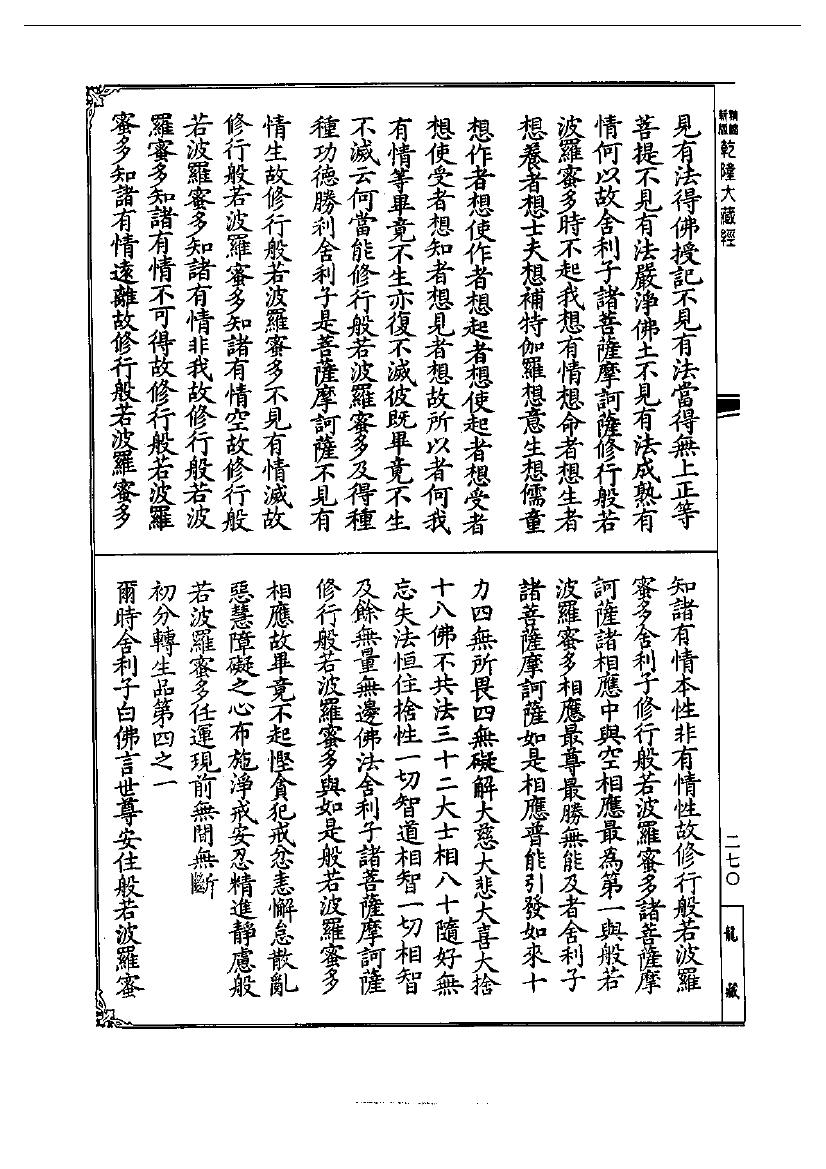 精縮
新版
乾隆大藏經
見有法得佛授記不見有法當得無上正等
菩提不見有法嚴淨佛土不見有法成熟有
情何以故舍利子諸菩薩摩訶薩修行般若
波羅蜜多時不起我想有情想命者想生者
想養者想士夫想補特伽羅想意生想儒童
想作者想使作者想起者想使起者想受者
想使受者想知者想見者想故所以者何我
有情等畢竟不生亦復不滅彼既畢竟不生
不滅云何當能修行般若波羅蜜多及得種
種功德勝利舍利子是菩薩摩訶薩不見有
情生故修行般若波羅蜜多不見有情滅故
修行般若波羅蜜多知諸有情空故修行般
若波羅蜜多知諸有情非我故修行般若波
羅蜜多知諸有情不可得故修行般若波羅
蜜多知諸有情遠離故修行般若波羅蜜多
知諸有情本性非有情性故修行般若波羅
蜜多舍利子修行般若波羅蜜多諸菩薩摩
訶薩諸相應中與空相應最為第一與般若
波羅蜜多相應最尊最勝無能及者舍利子
諸菩薩摩訶薩如是相應普能引發如來十
力四無所畏四無礙解大慈大悲大喜大捨
十八佛不共法三十二大士相八十隨好無
忘失法恒住捨性一切智道相智一切相智
及餘無量無邊佛法舍利子諸菩薩摩訶薩
修行般若波羅蜜多與如是般若波羅蜜多
相應故畢竟不起慳貪犯戒忿恚懈怠散亂
惡慧障礙之心布施淨戒安忍精進靜慮般
若波羅蜜多任運現前無間無斷
初分轉生品第四之一
爾時舍利子白佛言世尊安住般若波羅蜜
二七〇
龍藏